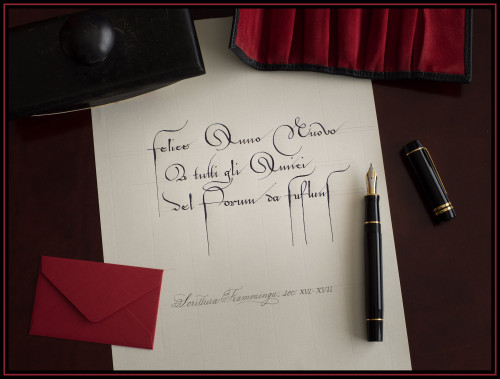 Felice Anno Nuovo
A tutti gli Amici
del Forum da fufluns
Scrittura Fiamminga, sec. XVI-XVII